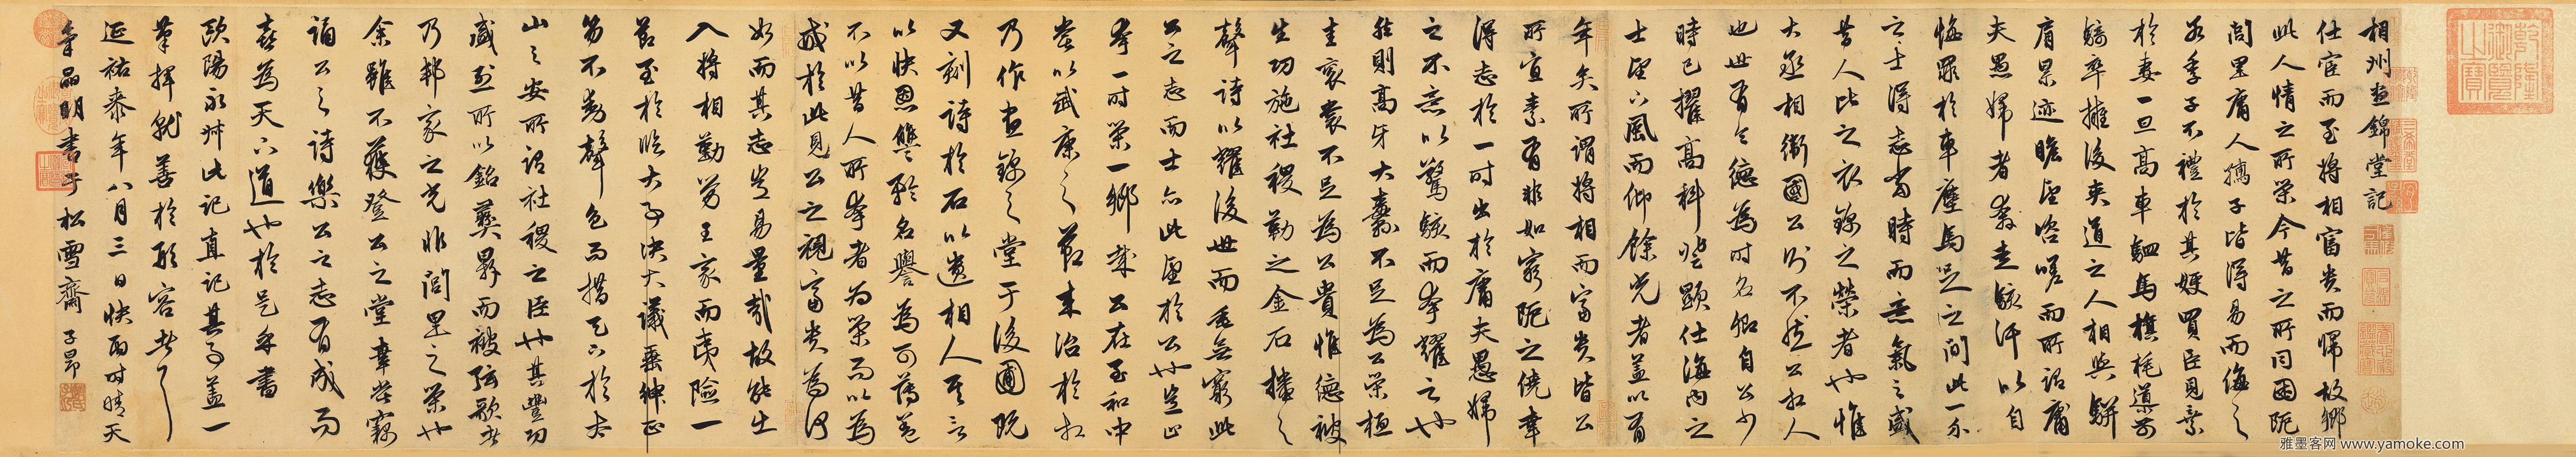 相州晝錦堂記
仕宦而至將相富貴而歸故鄉
此人情之所榮今昔之所同困阨
閭里庸人孺子皆得易而侮之
若季子不禮於其嫂買臣見棄
於妻一旦高車駟馬旗旄導前
騎卒擁後夾道之人相與駢
肩累迹瞻望咨嗟而所謂庸
夫愚婦者奔走駭汗以自
悔罪於車塵馬足之間此一介
之士得志當時而意氣之盛
昔人比之衣錦之榮者也惟
大丞相衛國公則不然公相人
也世有令德為時名卿自公少
時已擢高科登顯仕海內之
士望下風而仰餘光者蓋亦有
年矣所謂將相而富貴皆公
所宜素有非如窮阨之僥幸
得志於一時出於庸夫愚婦
之不意以驚駭而夸耀之也
然則高牙大纛不足為公榮桓
圭袞裳不足為公貴惟德被
生功施社稷勒之金石播之
聲詩以耀後世而垂無窮此
公之志而士亦此望於公也豈止
夸一時榮一鄉哉公在至和中
嘗以武康之節來治於相
乃作晝錦之堂于後圃既
又刻詩於石以遺相人其言
以快恩讎矜名譽為可薄蓋
不以昔人所夸者為榮而以為
戒於此見公之視富貴為何
如而其志豈易量哉故能出
入將相勤勞王家而夷險一
節至於臨大事決大議垂紳正
笏不動聲色而措天下於太
山之安所謂社稷之臣也其豐功
盛烈所以銘彝鼎而被弦歌者
乃邦家之光非閭里之榮也
余雖不獲登公之堂幸嘗竊
誦公之詩樂公之志有成而
喜為天下道也於是乎書
歐陽永叔此記真記其事蓋一
筆揮就善於形容者
延祐年八月三日快雨時晴天
明書于松雪齋 子昂
乾隆御覽之寶
雅墨客网 www.yamoke.com